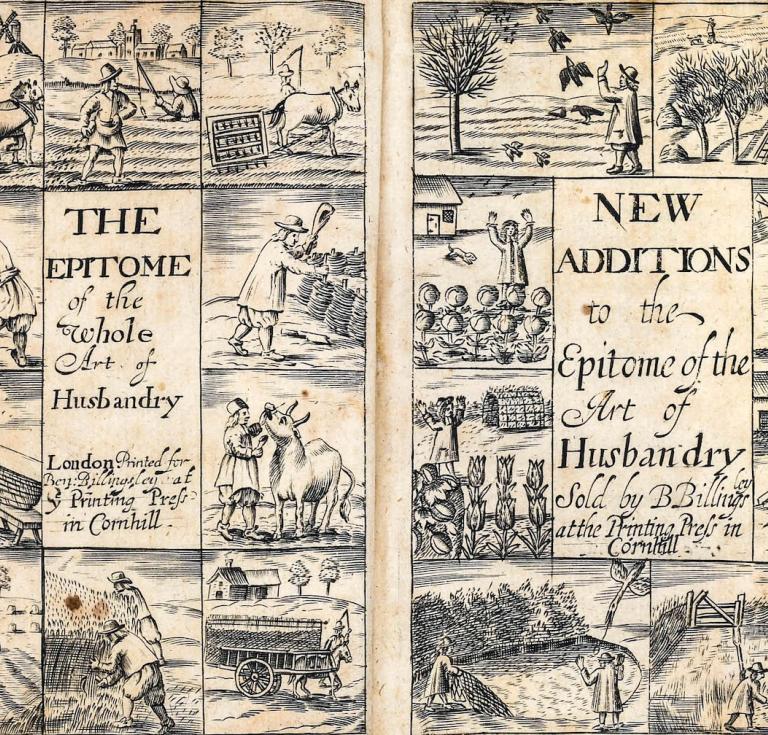 THE
EPITOME
of the
Whole
Art of
Husbandry
London Printed for
Ben: Billingsley at
y Printing Press
in Cornhill.
NEW
ADDITIONS
to the
Epitome of the
Art of
Husbandry
Sold by B Billingsley
at the Printing Press in
Cornhill